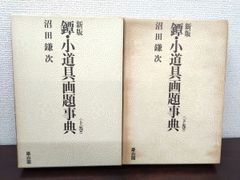 新版
鐔・小道具画題事典
〈上巻〉
沼田鎌次
雄山閣
新版
鐔・小道具画題事典
〈下巻〉
沼田鎌次
雄山閣